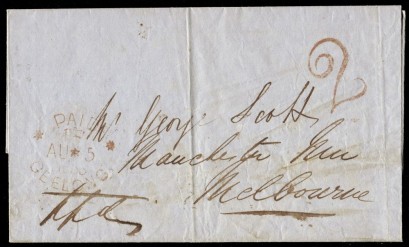 2
PAID
AU 5
GEELONG
Mr George Scott
Manchester Inn
Melbourne